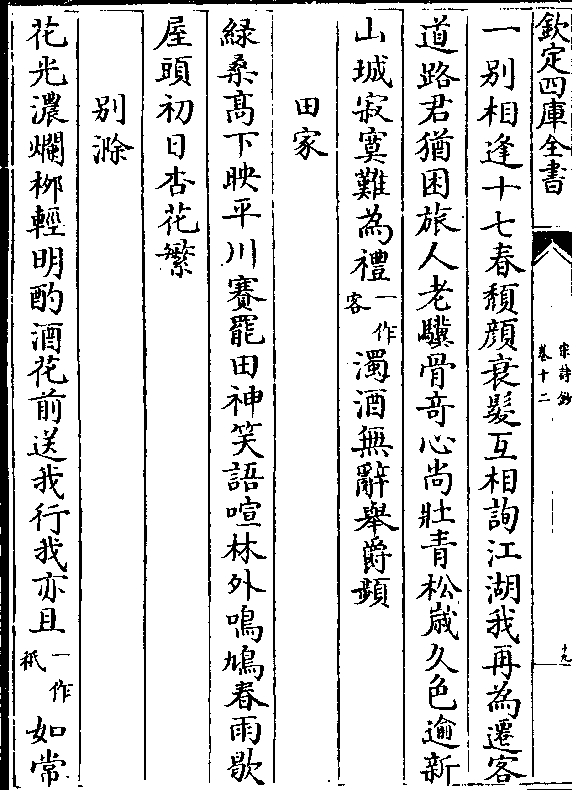 欽定四庫全書
宋詩鈔
卷十二
十九
一别相逢十七春頹顔衰髮互相詢江湖我再為遷客
道路君猶困旅人老驥骨竒心尚壯青松嵗久色逾新
山城寂寞難為禮一作客濁酒無辭舉爵頻
田家
緑桑髙下映平川賽罷田神笑語喧林外鳴鳩春雨歇
屋頭初日杏花繁
别滁
花光濃爛栁輕明酌酒花前送我行我亦且一作秪如常